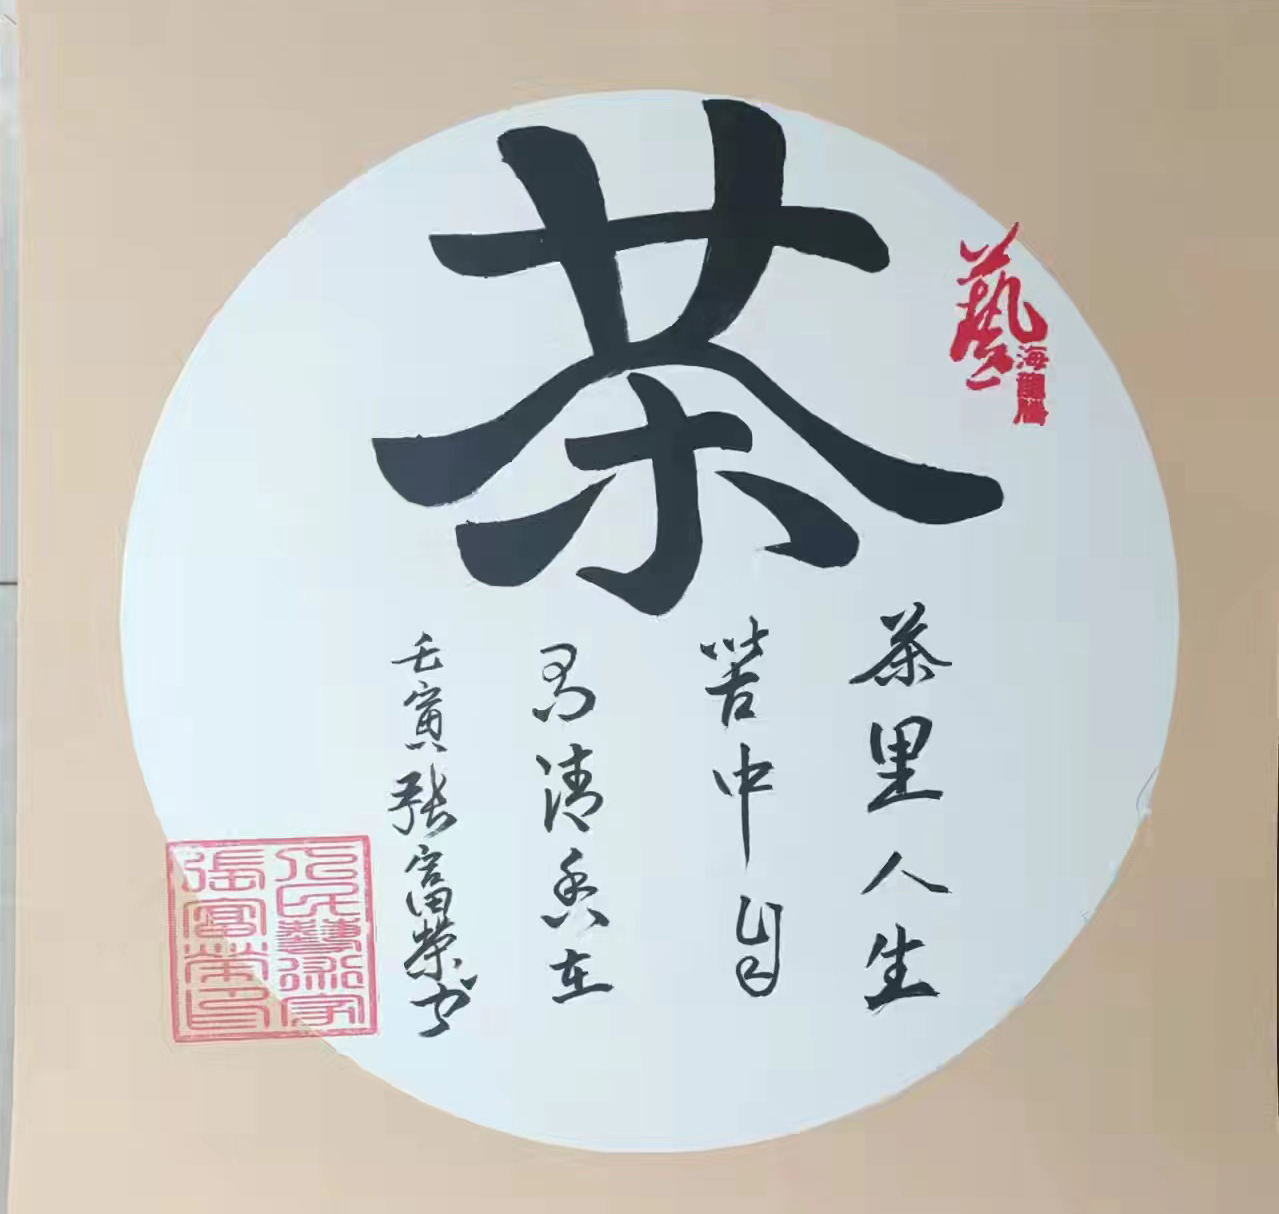 茶
藝
海龍騰
茶里人生
苦中自
有清香在
壬寅张富荣书
人民藝術家
張富榮印